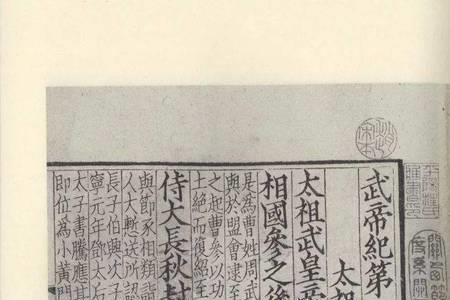 武帝紀第
太
太祖武皇帝
相國參之後
是爲曹姓周武
與於盟會逮至
之起曹參以功
土絕而復紹至
侍大長秋封
與節豕相類詣
人大慙送所認
長子伯興次子
寧元年鄧太后
太子書騰應
即位為小黃門